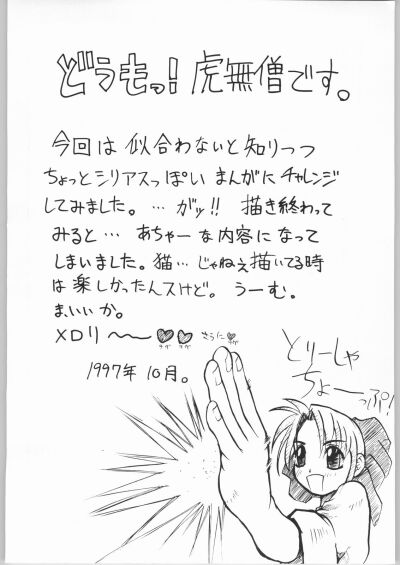 どうもっ! 虎無僧です。
今回は 似合わないと知りつつ
ちょっとシリアスっぽい まんがにチャレンジ
してみました。… がッ!! 描き終わって
みると… あちゃーな内容になって
しまいました。猫… じゃねえ描いてる時
は 楽しかったんスけど。うーむ。
ま、いいか。
メロリ〜〜♥♥ さらに♥
1997年 10月。
とりーしゃ
ちょーっぷ!